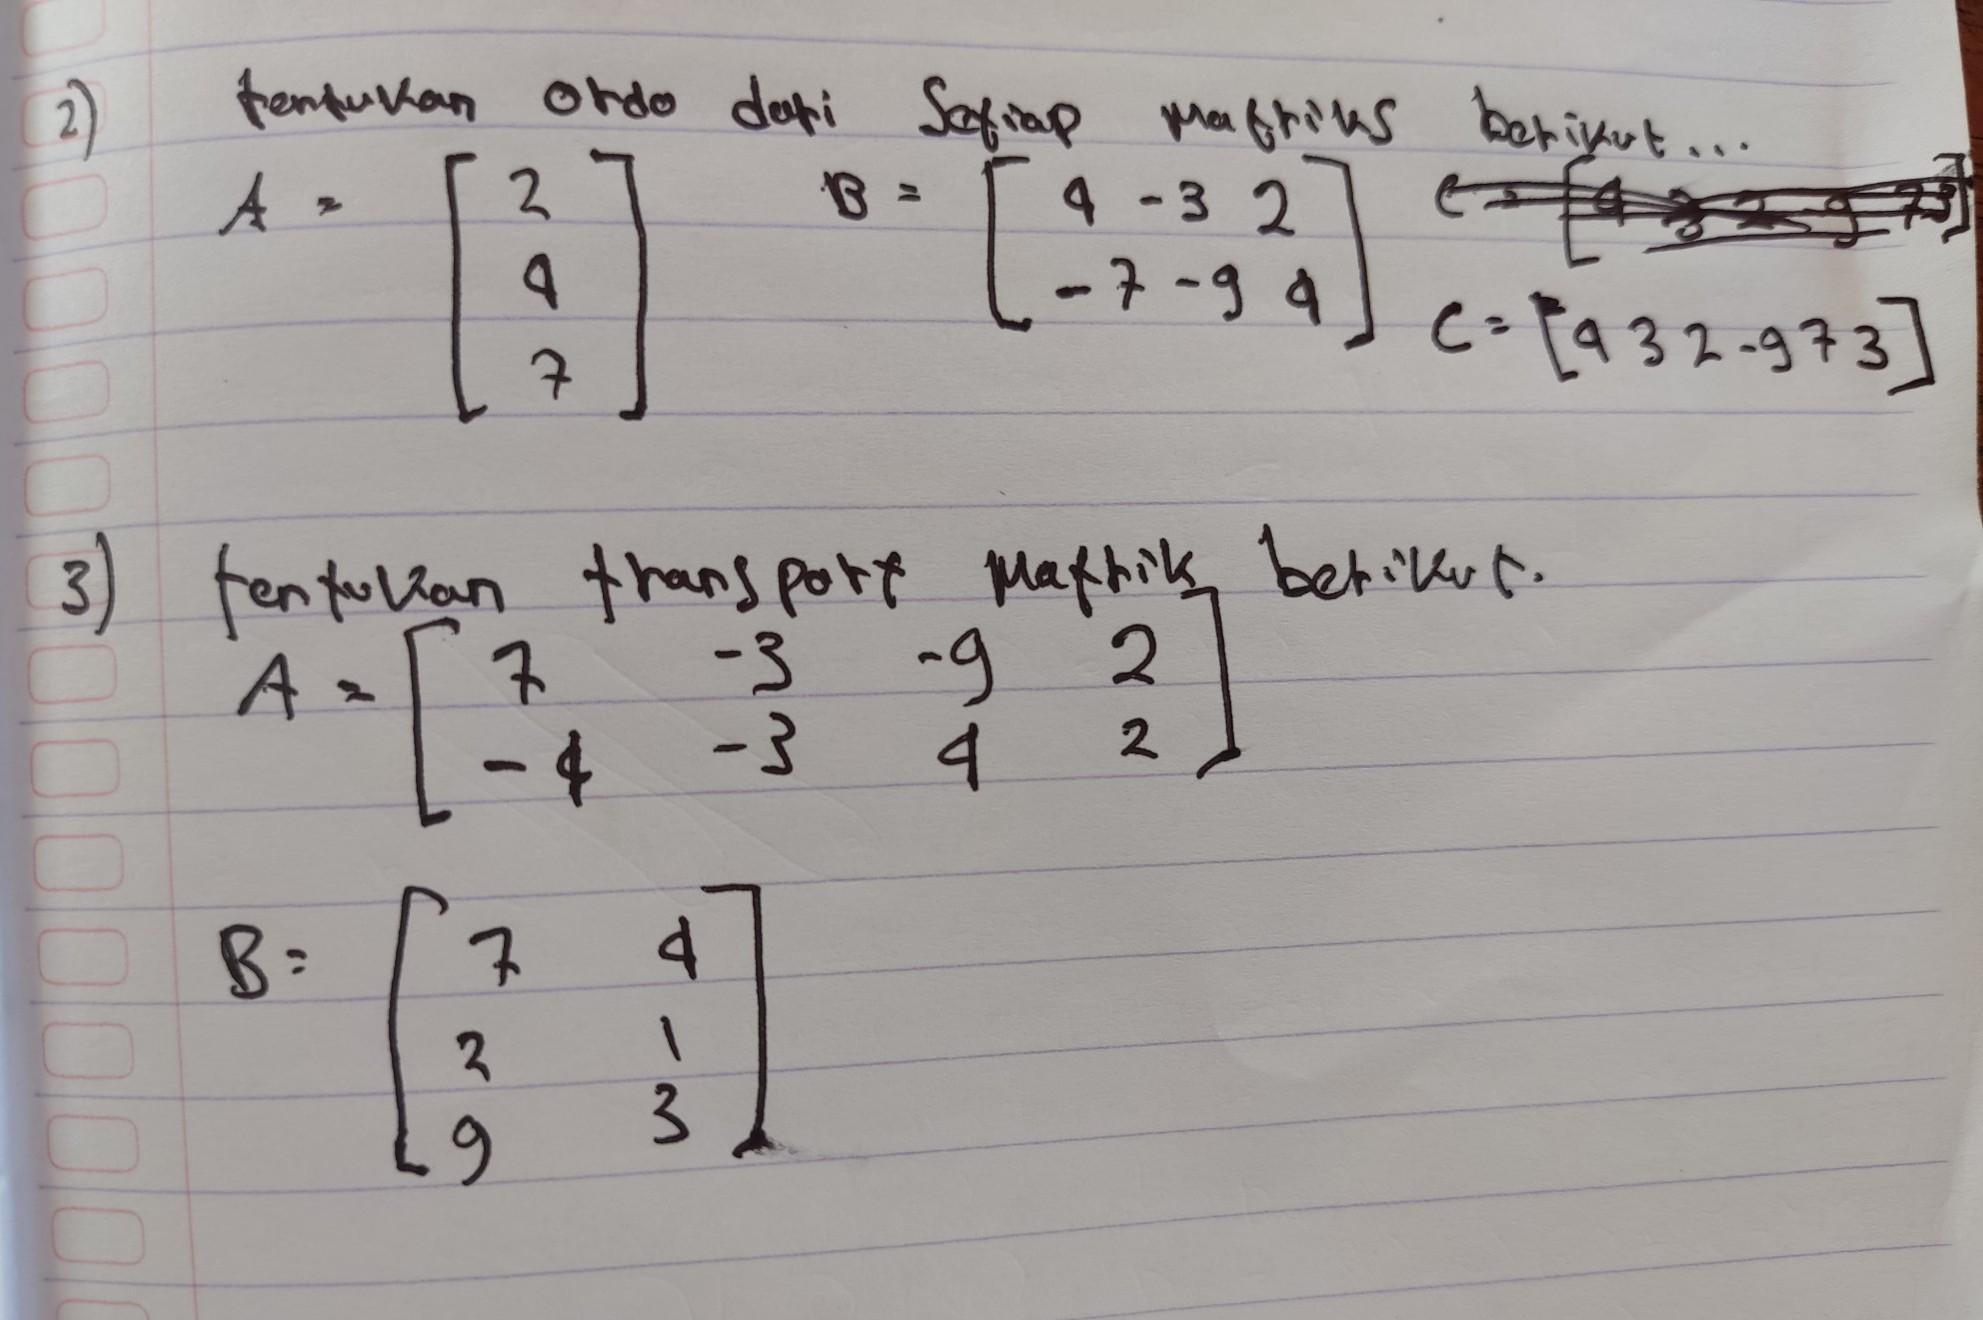 2) tentukan ordo dari Setiap matriks berikut...
A = [ 2 B = [ 4 -3 2 ]
4 -7 -9 4 ] C = [ 4 3 2 -9 7 3 ]
7 ]
3) tentukan transport Matrik berikut.
A = [ 7 -3 -9 2 ]
-4 -3 4 2 ]
B = [ 7 4 ]
2 1
9 3 ]